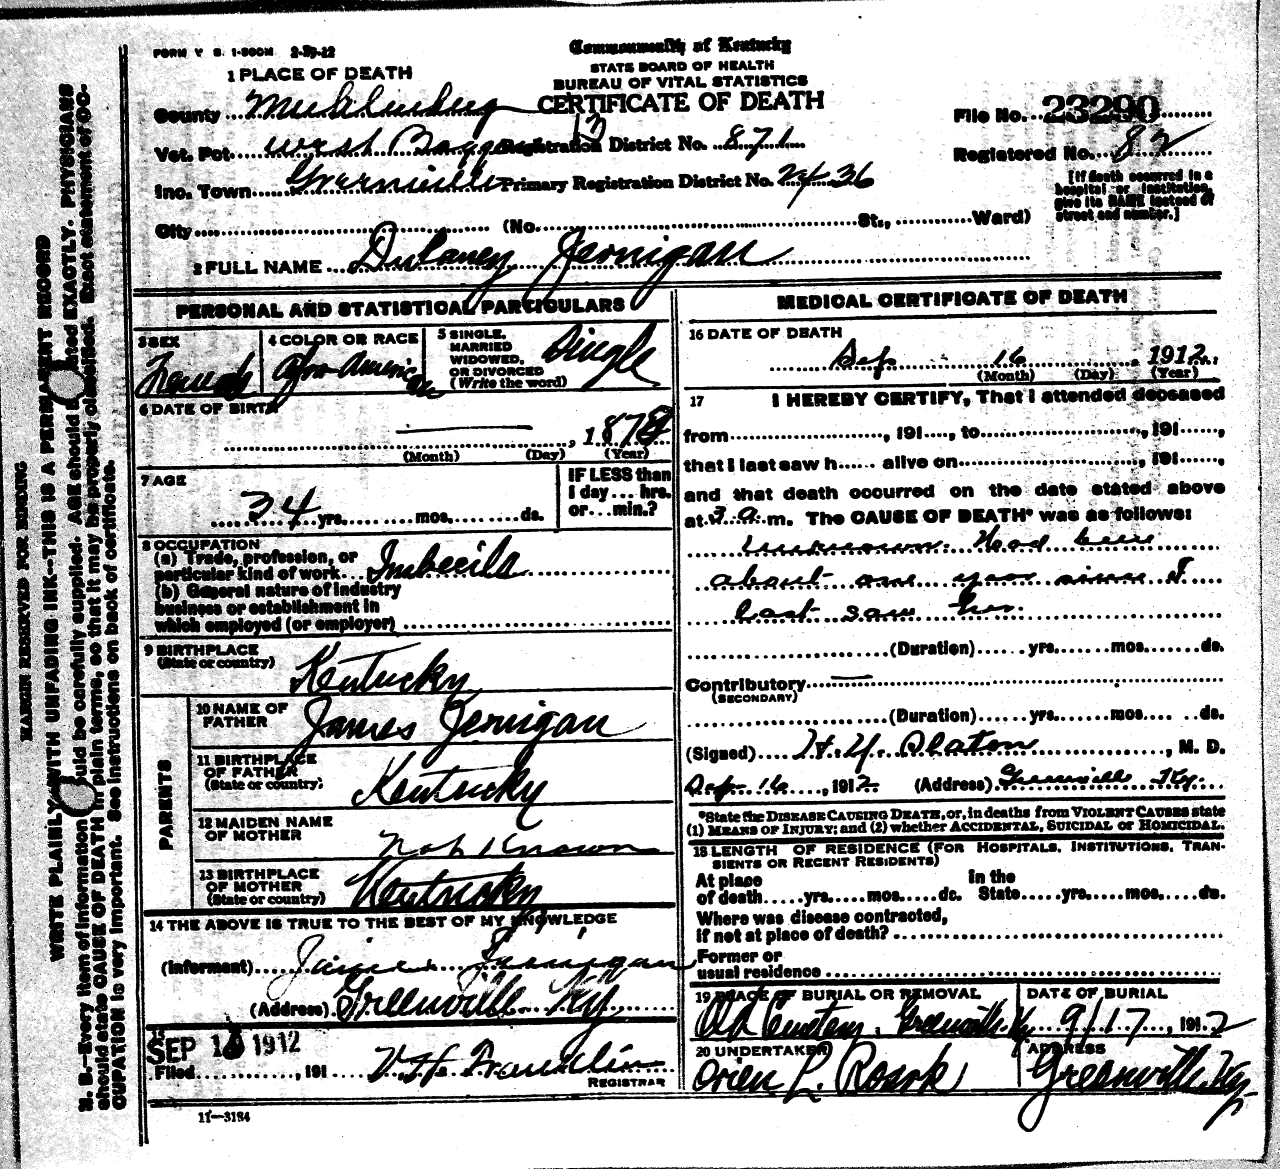 FORM V. S. 1-500M 2-19-12
Commonwealth of Kentucky
STATE BOARD OF HEALTH
BUREAU OF VITAL STATISTICS
CERTIFICATE OF DEATH
1 PLACE OF DEATH
County Muhlenberg
File No. 23290
Vot. Pct. West Registration District No. 871
Registered No. 82
Inc. Town Greenville Primary Registration District No. 2436
[If death occurred in a hospital or institution, give its NAME instead of street and number.]
City (No. St., Ward)
2 FULL NAME Dulaney Jernigan
PERSONAL AND STATISTICAL PARTICULARS
3 SEX Female
4 COLOR OR RACE Afro-American
5 SINGLE, MARRIED WIDOWED, OR DIVORCED (Write the word) Single
6 DATE OF BIRTH
, 1878
(Month) (Day) (Year)
7 AGE
34 yrs. mos. ds.
IF LESS than 1 day ... hrs. or ... min.?
8 OCCUPATION
(a) Trade, profession, or particular kind of work Imbecile
(b) General nature of industry business or establishment in which employed (or employer)
9 BIRTHPLACE
(State or country) Kentucky
PARENTS
10 NAME OF FATHER James Jernigan
11 BIRTHPLACE OF FATHER (State or country) Kentucky
12 MAIDEN NAME OF MOTHER Not Known
13 BIRTHPLACE OF MOTHER (State or country) Kentucky
14 THE ABOVE IS TRUE TO THE BEST OF MY KNOWLEDGE
(Informant) James Jernigan
(Address) Greenville Ky
15
SEP 1 1912
Filed , 191 V. H. Franklin
REGISTRAR
11-3184
MEDICAL CERTIFICATE OF DEATH
16 DATE OF DEATH
Sep 16 , 1912
(Month) (Day) (Year)
17 I HEREBY CERTIFY, That I attended deceased
from , 191 , to , 191 ,
that I last saw h alive on , 191 ,
and that death occurred on the date stated above
at 3 a m. The CAUSE OF DEATH* was as follows:
unknown. Had been
about one year since I
last saw her.
(Duration) yrs. mos. ds.
Contributory
(SECONDARY)
(Duration) yrs. mos. ds.
(Signed) H. Y. Slaton , M. D.
Sep. 16 , 1912 (Address) Greenville Ky.
*State the DISEASE CAUSING DEATH, or, in deaths from VIOLENT CAUSES state
(1) MEANS OF INJURY; and (2) whether ACCIDENTAL, SUICIDAL or HOMICIDAL.
18 LENGTH OF RESIDENCE (FOR HOSPITALS, INSTITUTIONS, TRANSIENTS OR RECENT RESIDENTS)
At place of death yrs. mos. ds. In the State yrs. mos. ds.
Where was disease contracted, if not at place of death?
Former or usual residence
19 PLACE OF BURIAL OR REMOVAL
Old Cemetery, Greenville Ky
DATE OF BURIAL
9/17, 1912
20 UNDERTAKER
Orien L. Roark
ADDRESS
Greenville, Ky.
MARGIN RESERVED FOR BINDING
WRITE PLAINLY WITH UNFADING INK—THIS IS A PERMANENT RECORD
N. B.—Every item of information should be carefully supplied. AGE should be stated EXACTLY. PHYSICIANS
should state CAUSE OF DEATH in plain terms, so that it may be properly classified. Exact statement of OC-
CUPATION is very important. See instructions on back of certificate.